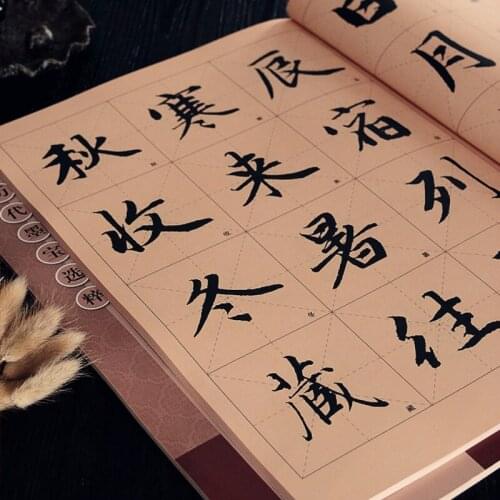 日月
辰宿列
寒来暑往
秋收冬藏
代墨宝选粹